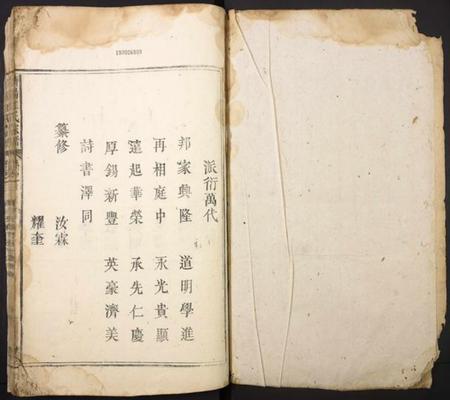 派衍萬代
邦家興隆 道明學進
再相庭中 永光貴顯
蓬起華榮 承先仁慶
厚錫新豐 英豪濟美
詩書澤同
纂修 汝霖
耀奎